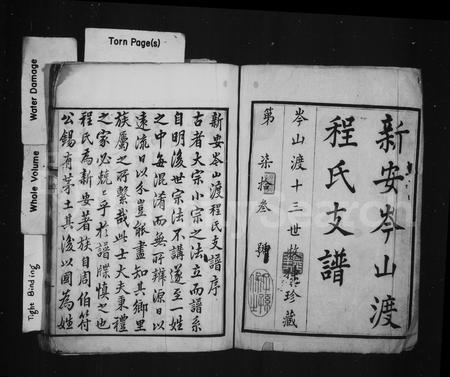 Torn Page(s)
Water Damage
Whole Volume
Tight Binding
新安岑山渡
程氏支譜
岑山渡十三世 珍藏
第柒拾叁號
新安岑山渡程氏支譜序
古者大宗小宗之法立而譜系
自明後世宗法不講遂至一姓
之中每混淆而無所辨源日以
遠流日以分豈能盡知其鄉里
族屬之所繫哉與士大夫秉禮
之家必兢兢乎於譜牒慎之也
程氏為新安著族自周伯符
公錫有茅土其後以國為姓